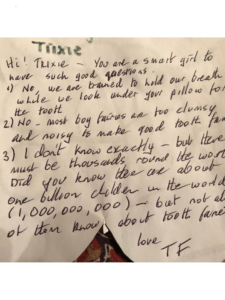 Trixie
Hi! Trixie – You are a smart girl to
have such good questions.
1) No, we are trained to hold our breath
while we look under your pillow for
the tooth
2) No – most boy fairies are too clumsy
and noisy to make good tooth fairies
3) I don't know exactly – but there
must be thousands round the world
Did you know there are about
one billion children in the world
(1,000,000,000) – but not all
of them know about tooth fairies
love
TF